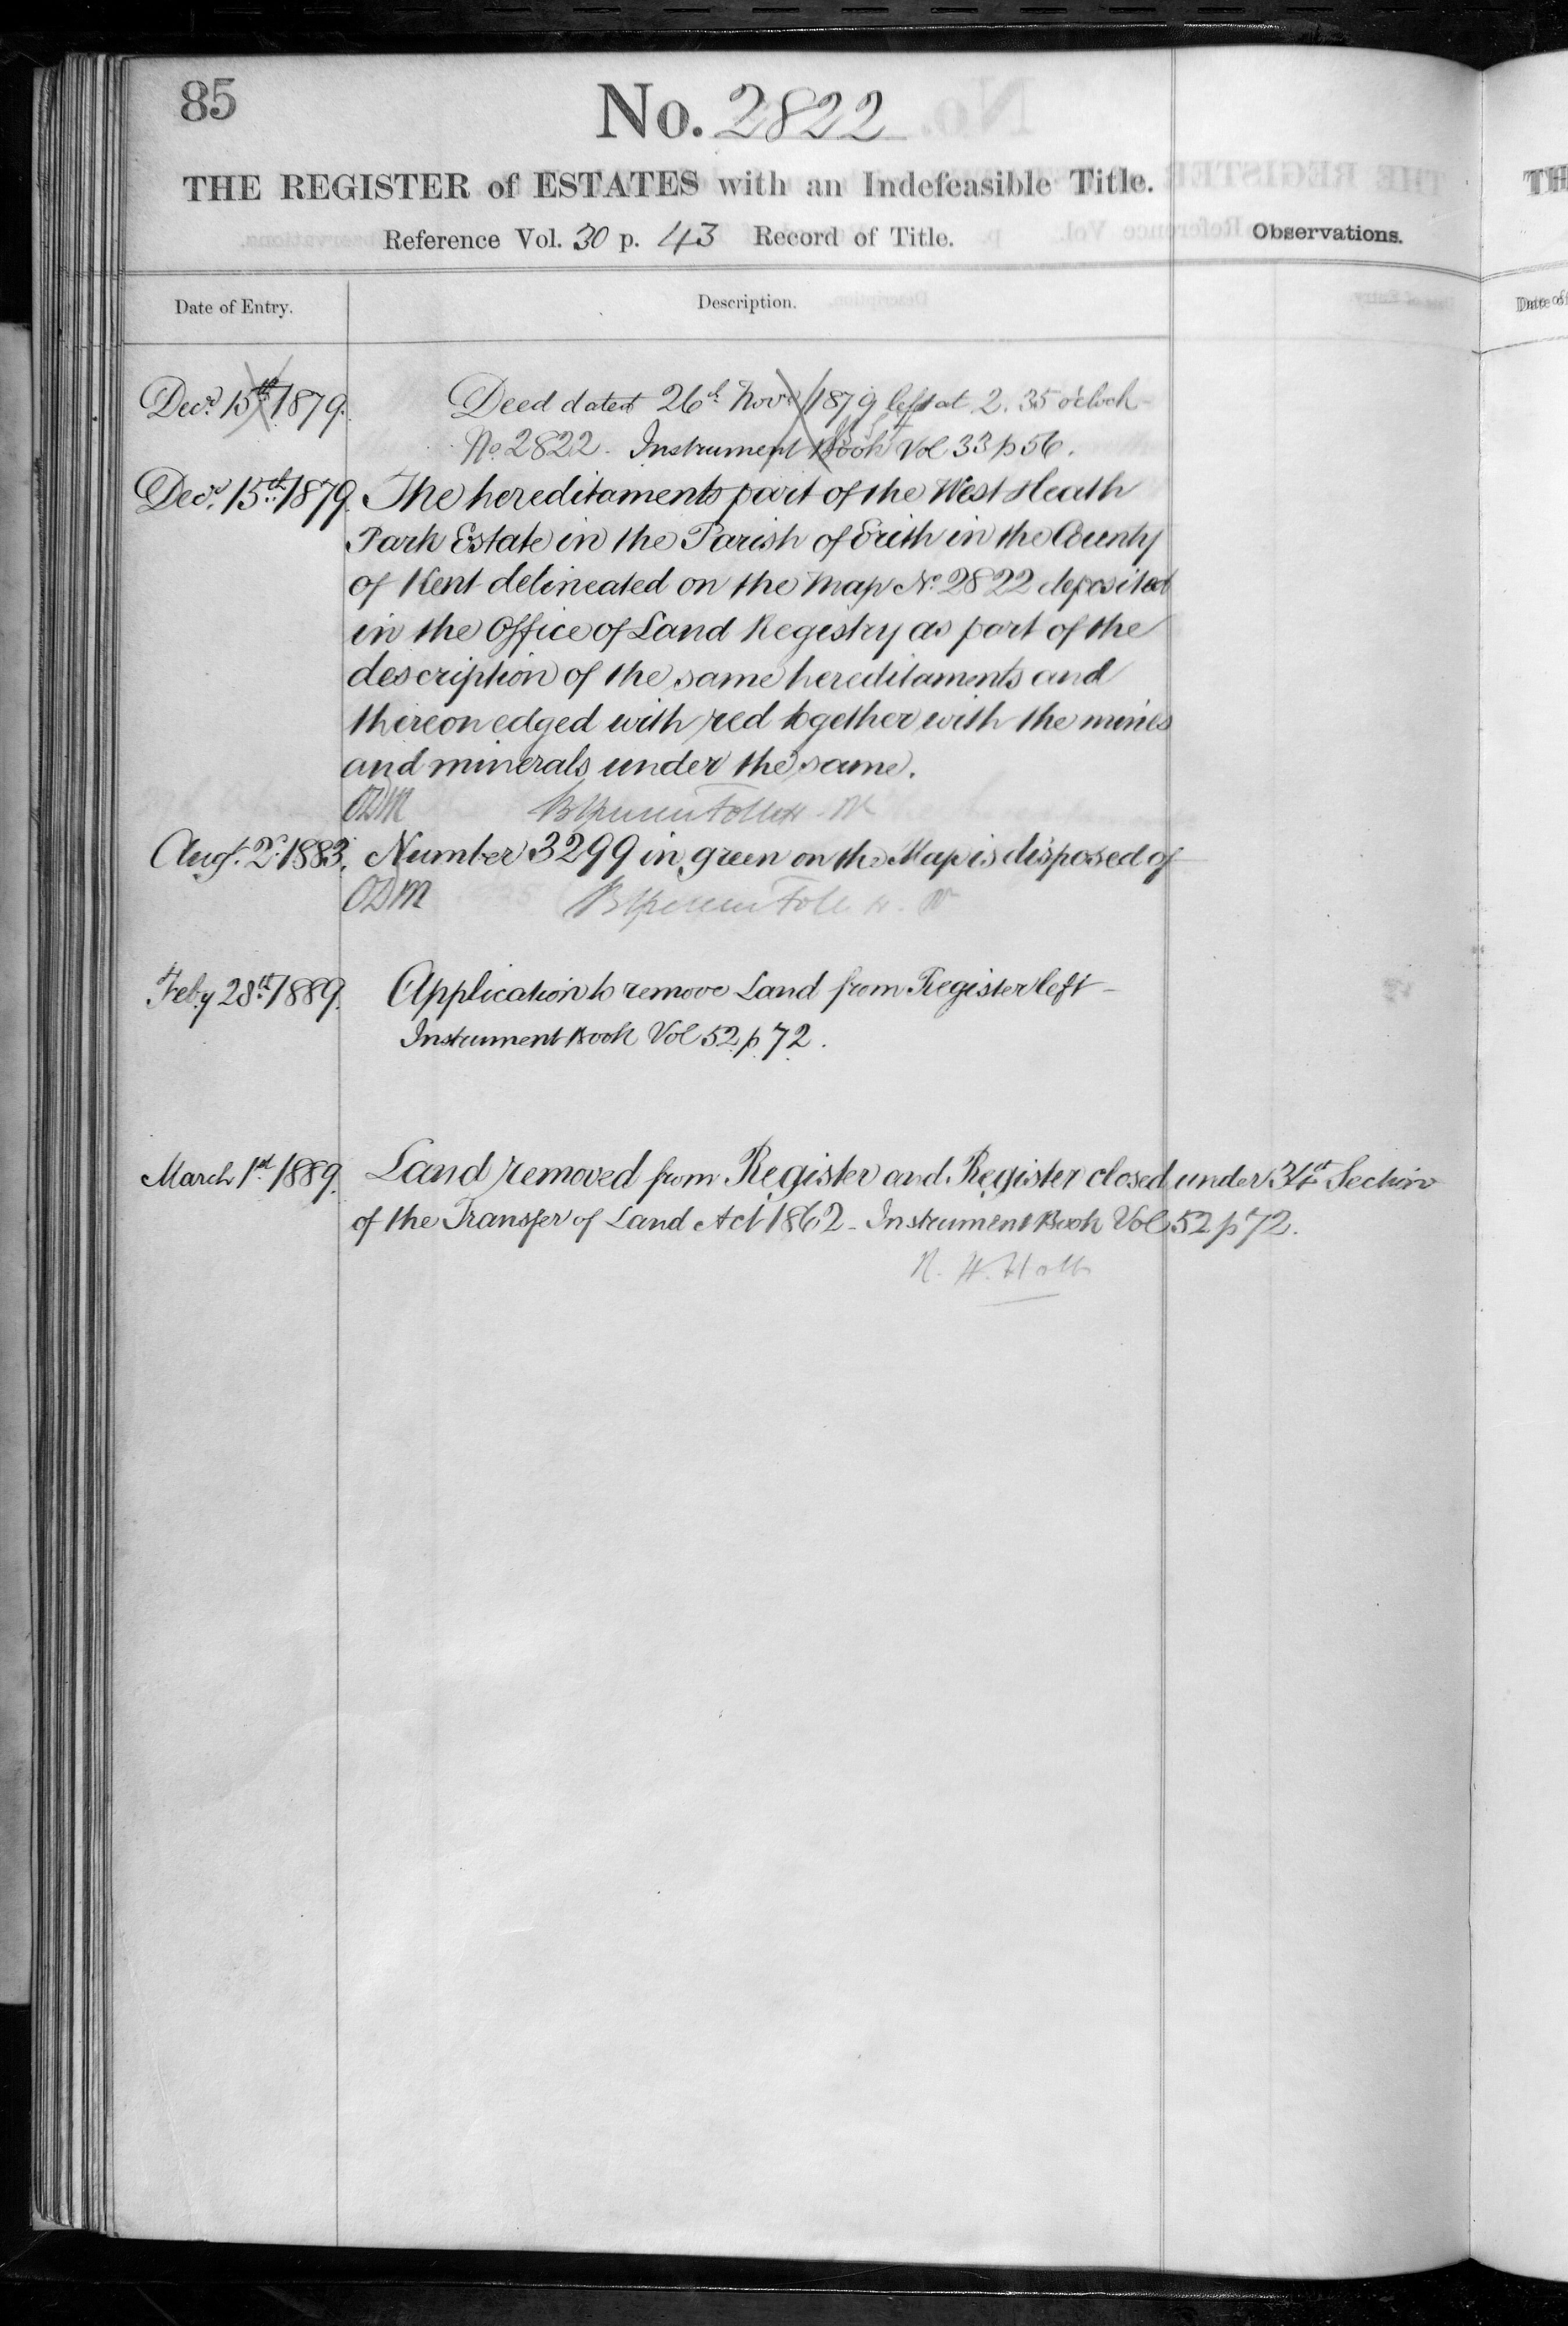 85
No. 2822
THE REGISTER of ESTATES with an Indefeasible Title.
Reference Vol. 30 p. 43 Record of Title.
Observations.
Date of Entry.
Description.
Decr. 15th 1879. Deed dated 26th Novr 1879 left at 2.35 o'clock
No 2822. Instrument Book Vol 33 p 56.
Decr. 15th 1879. The hereditaments part of the West Heath
Park Estate in the Parish of Erith in the County
of Kent delineated on the Map No. 2822 deposited
in the Office of Land Registry as part of the
description of the same hereditaments and
thereon edged with red together with the mines
and minerals under the same.
ODM
Augt. 2d. 1883. Number 3299 in green on the Map is disposed of
ODM
Feby 28th 1889. Application to remove Land from Register left
Instrument Book Vol 52 p 72.
March 1st 1889. Land removed from Register and Register closed under 34th Section
of the Transfer of Land Act 1862 - Instrument Book Vol 52 p 72.
R. H. Holt